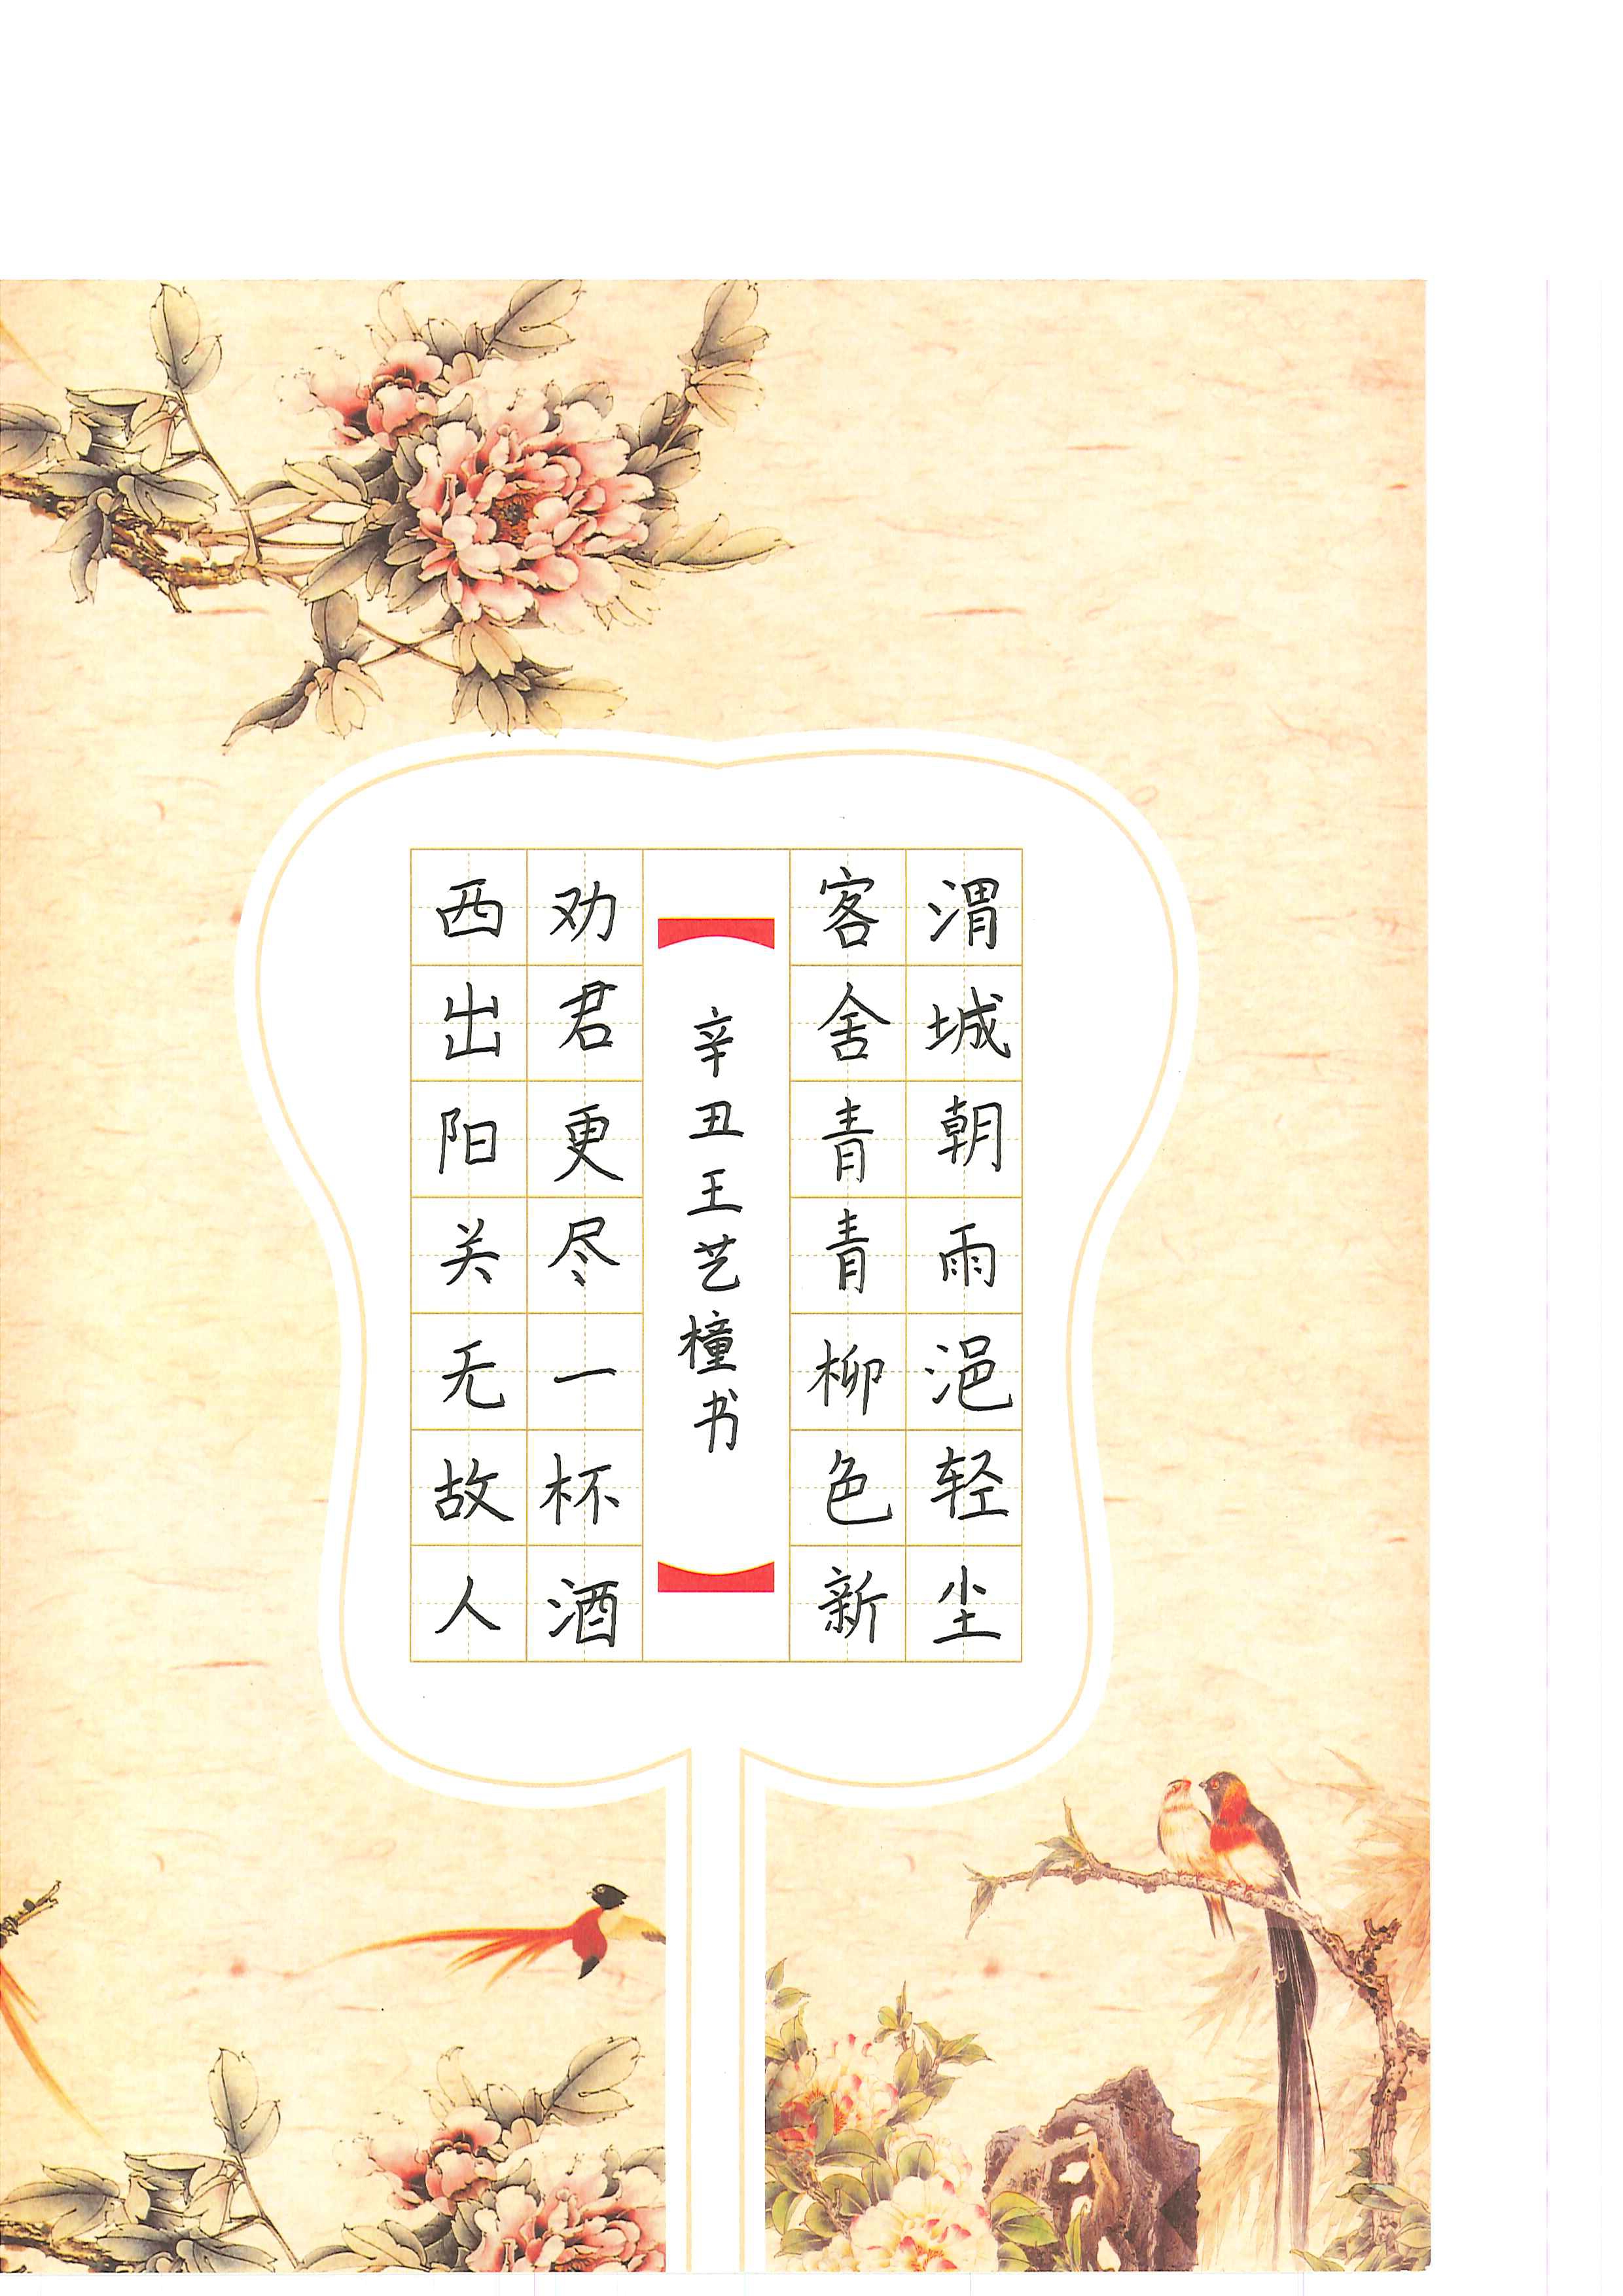 渭城朝雨浥轻尘
客舍青青柳色新
辛丑王艺橦书
劝君更尽一杯酒
西出阳关无故人